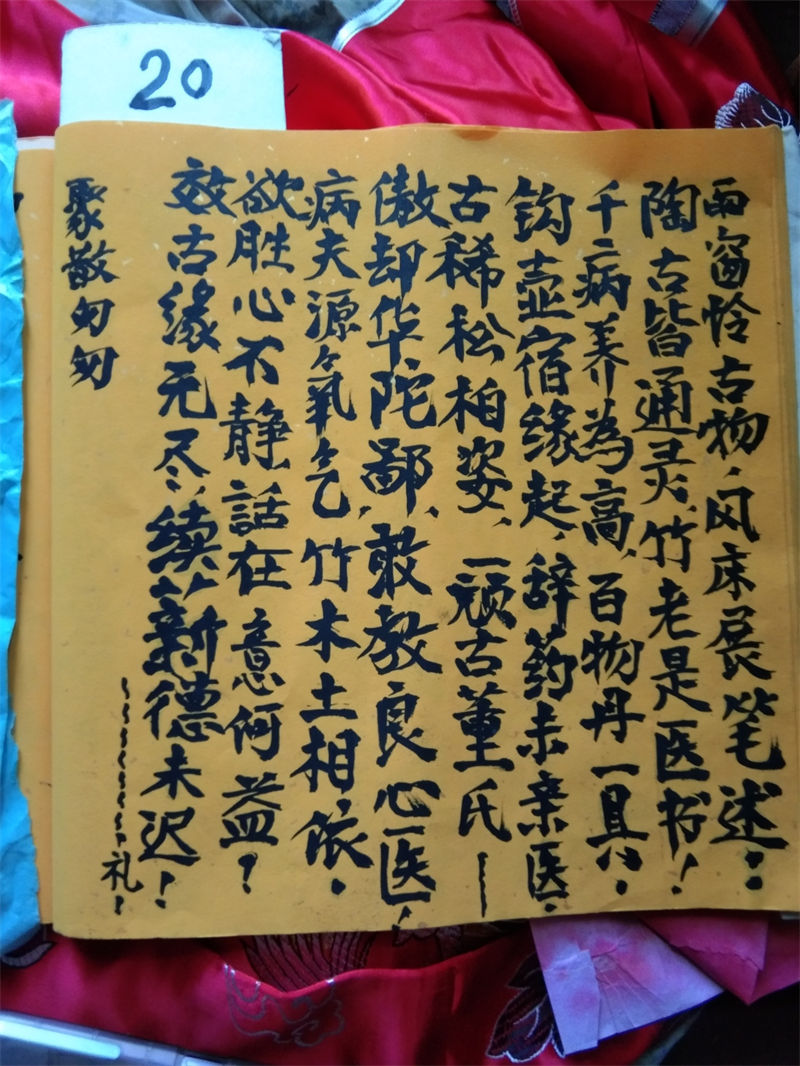 20
雨窗怜古物，风床展笔述：
陶古皆通灵，竹老是医书！
千病养為高，百物丹一具！
钩壶宿缘起，辞药未亲医。
古稀松柏姿，一顽古董氏——
傲却华陀鄙，敢教良心医！
病夫源氧气，竹木土相依。
欲胜心不静，話在意何益？
效古缘无尽，续薪德未迟！
聚散匆匆
————礼！